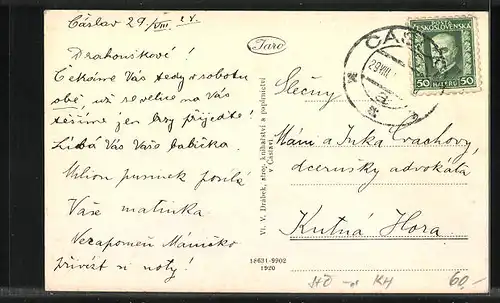 Čáslav 29/VIII 28.
Drahouškové!
Čekáme Vás tedy v sobotu
obě, už se velice na Vás
těšíme jen brzy přijeďte!
Líbá Vás Vaše babička.
Milion pusinek posílá
Vaše matinka
Nezapomeň Máničko
přivézt si noty!
Taro
Vl. V. Drábek, firoy, knihařství a papírnictví
v Čáslavi
18631-9902
1920
ČESKOSLOVENSKÁ
50 HALÉŘŮ 50
ČÁS
29 VIII
Slečny
Máňa a Inka
dcerušky advokáta
Kutná Hora.
HD - KH
60,-